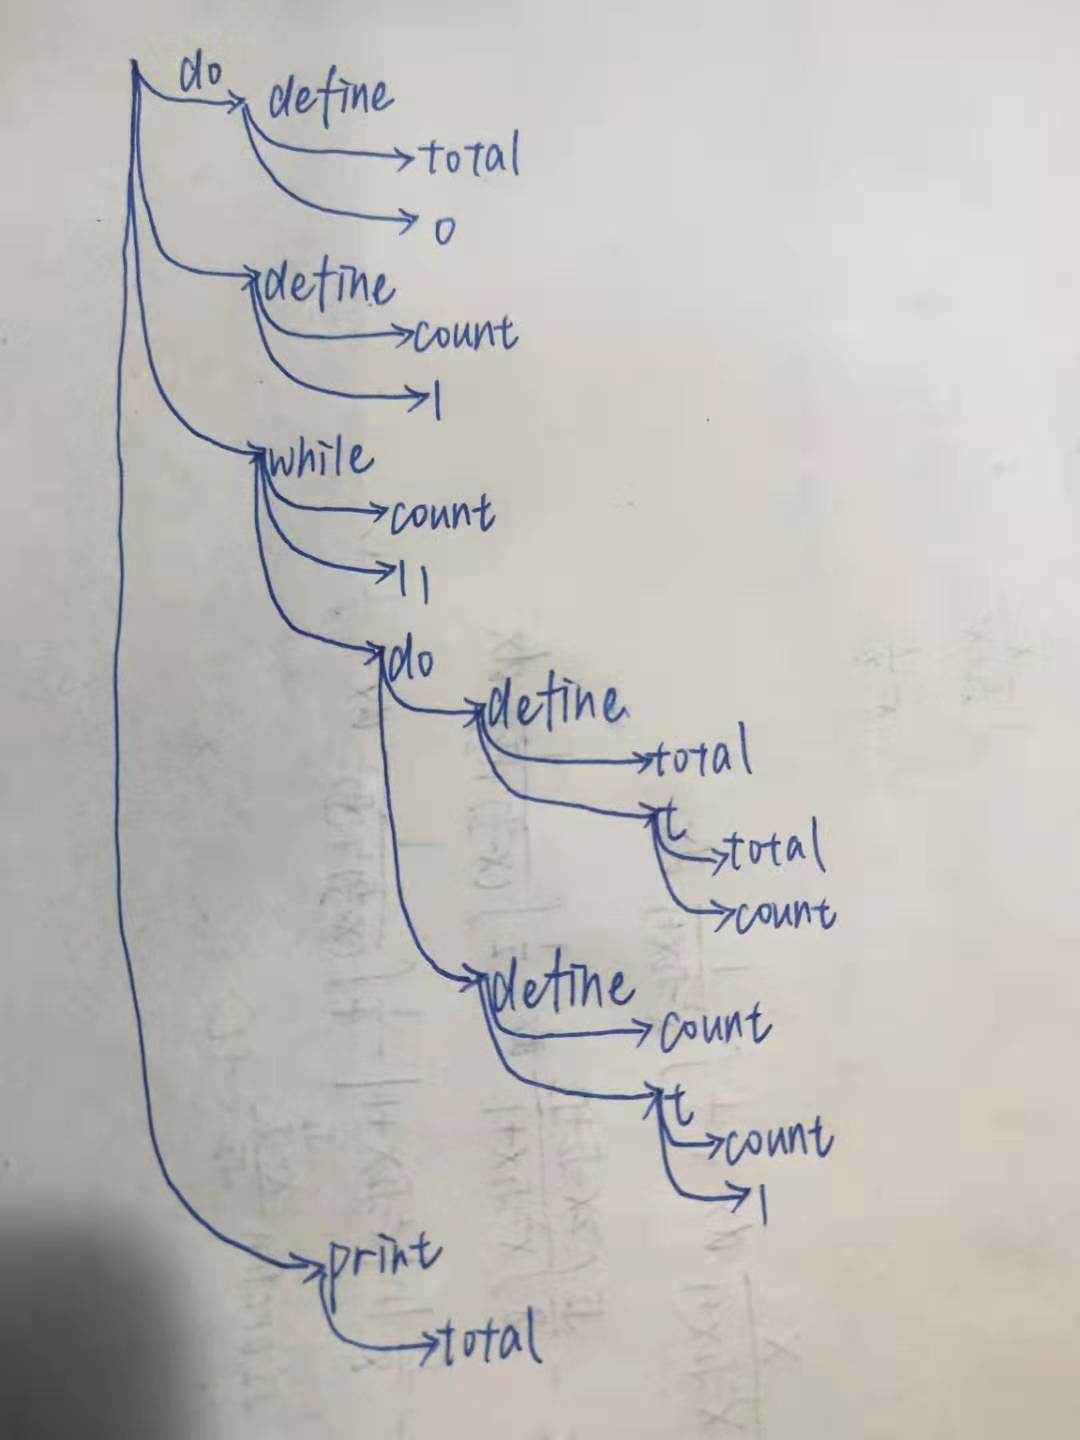 do
define
total
0
define
count
1
while
count
11
do
define
total
t
total
count
define
count
t
count
1
print
total